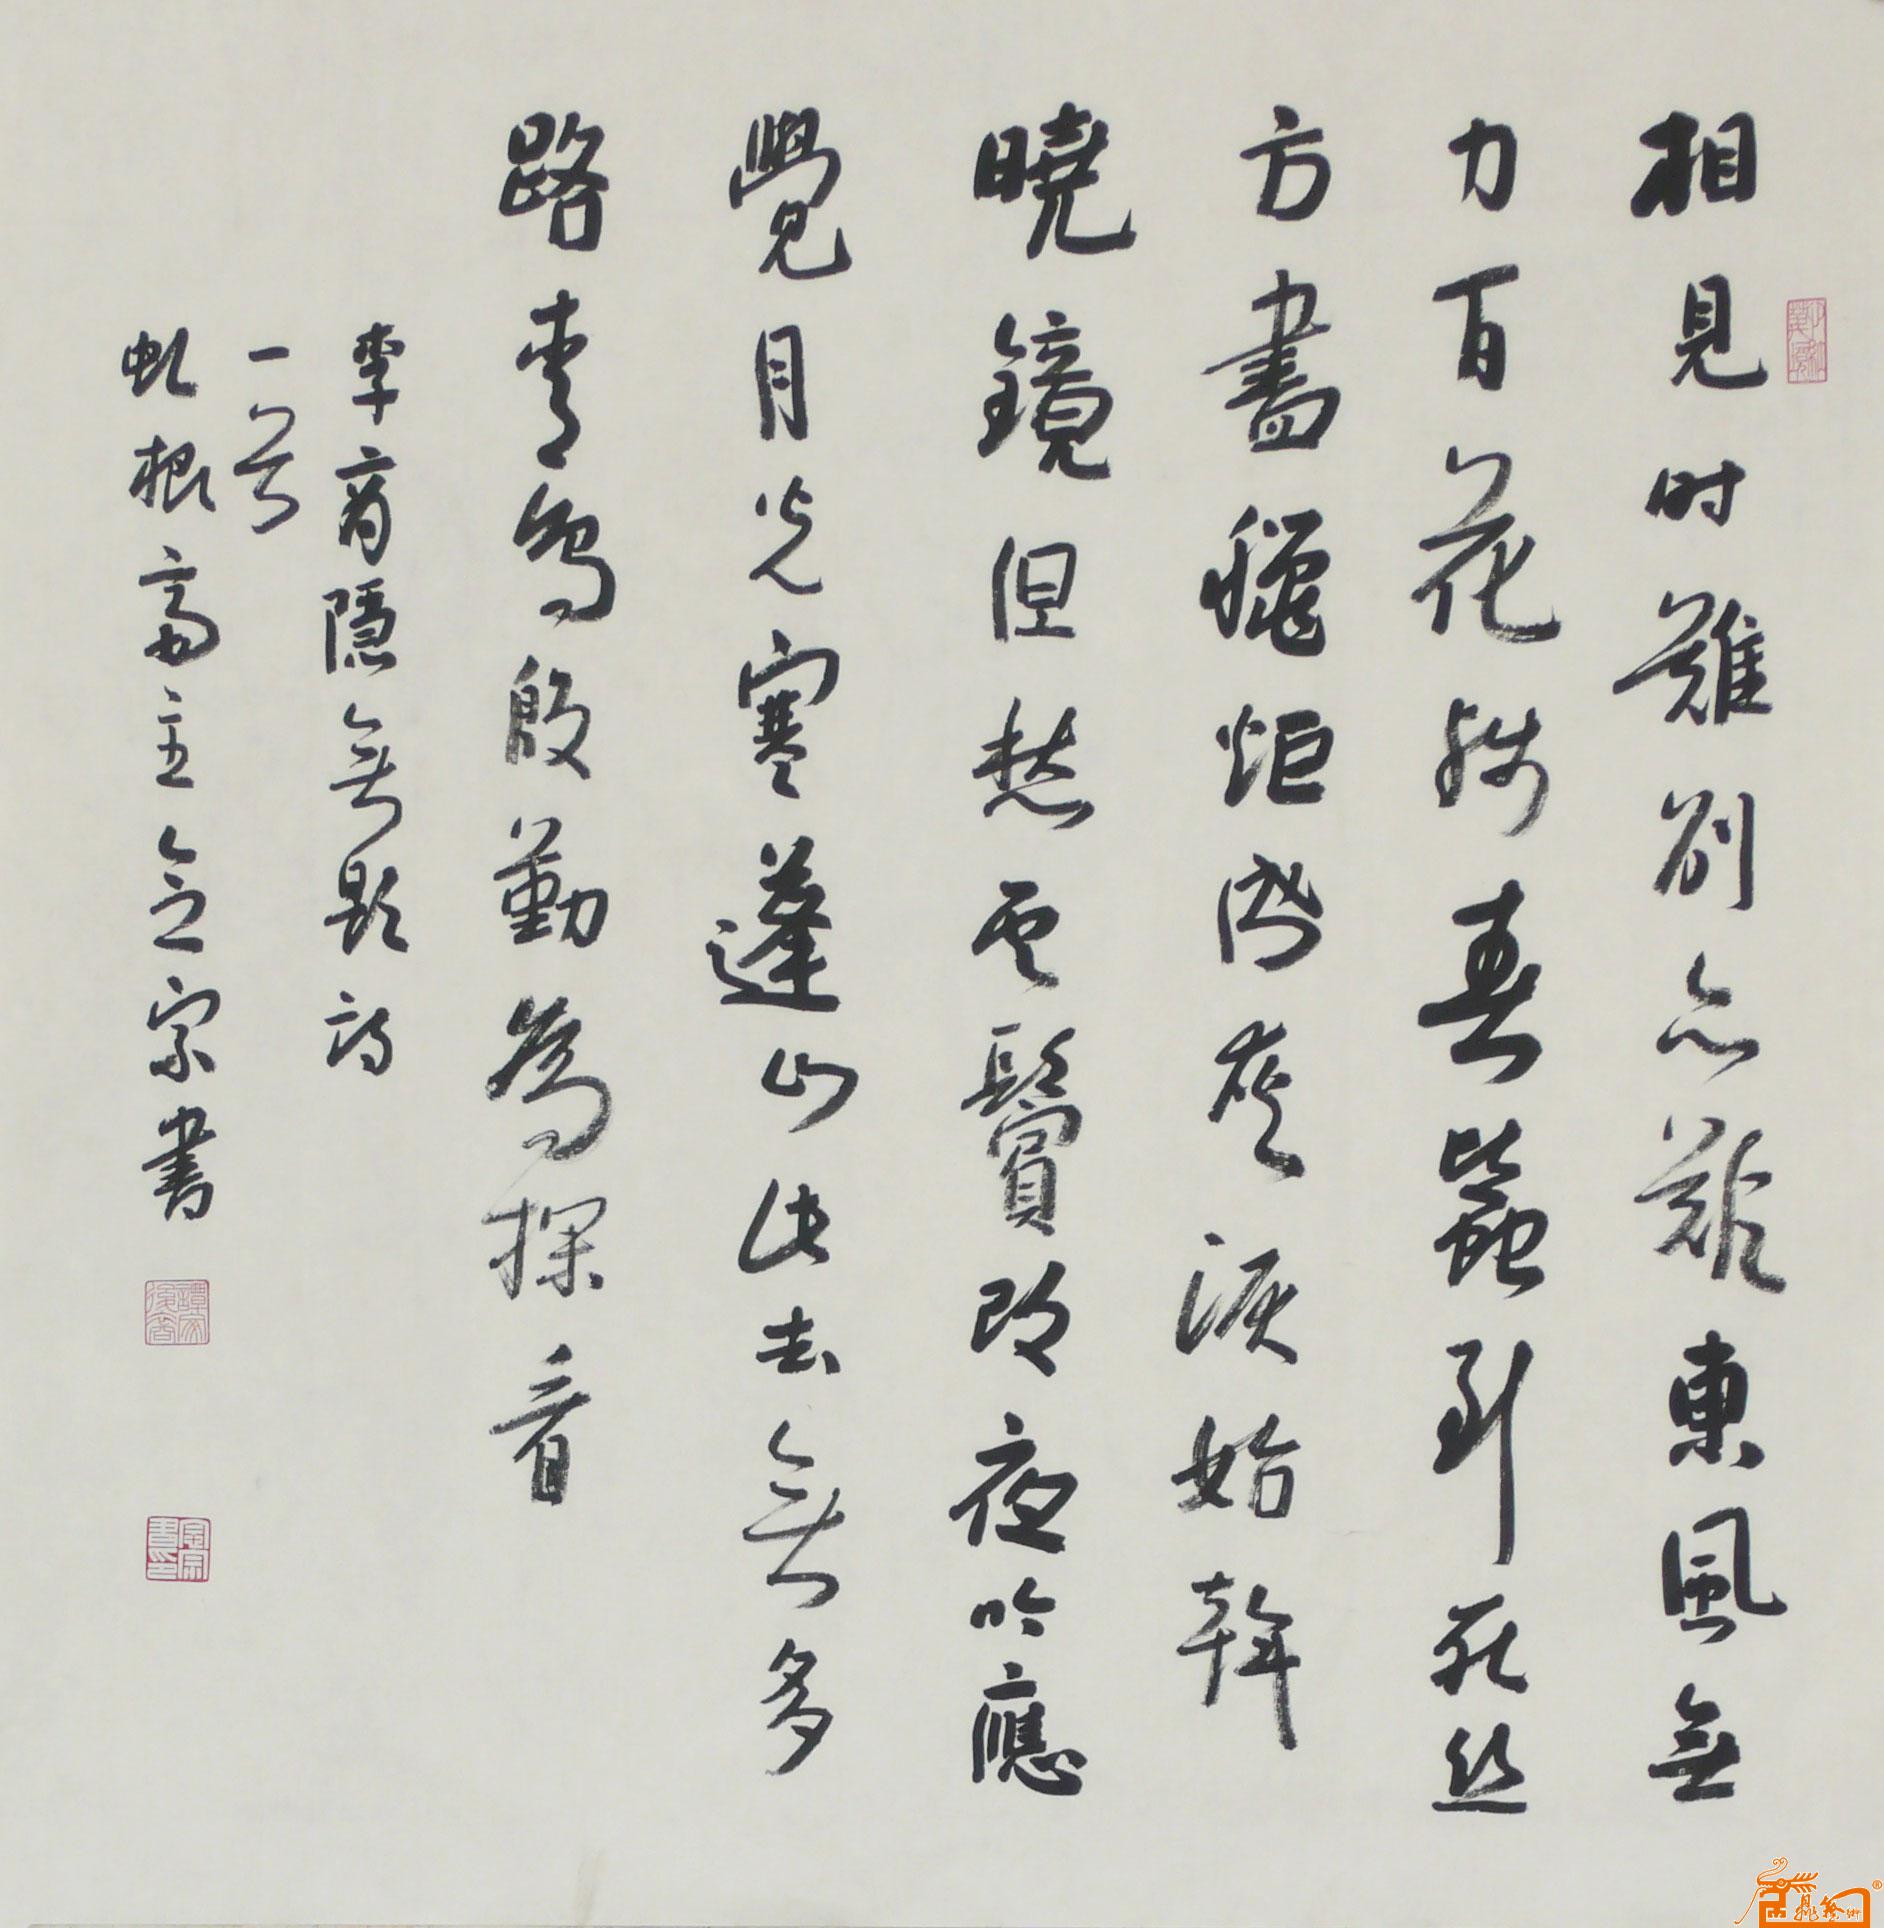 相見时難別亦難東風無
力百花殘春蠶到死丝
方盡蠟炬成灰淚始幹
曉鏡但愁雲鬢改夜吟應
覺月光寒蓬山此去無多
路青鳥殷勤為探看
李商隱無題詩
一首
虬根齋主宗書